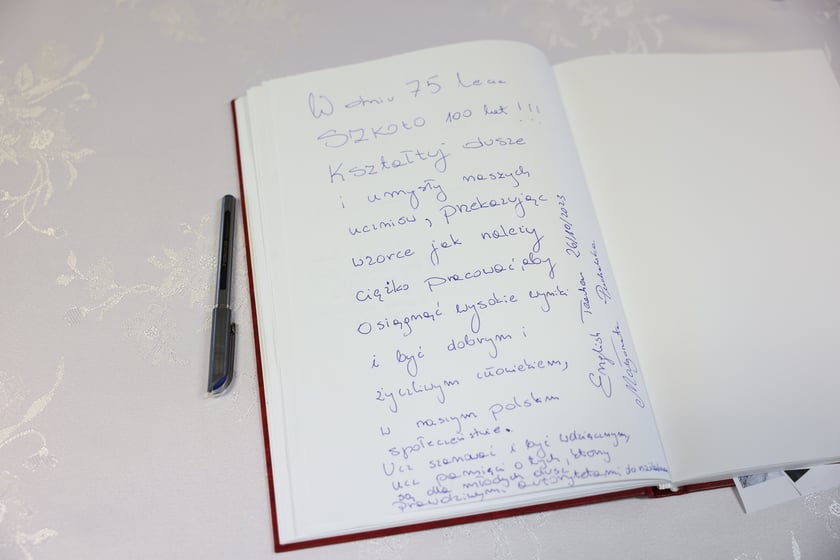 W dniu 75 lecia
SZKOŁO 100 lat !!!
Kształtuj dusze
i umysły naszych
uczniów, przekazując
wzorce jak należy
ciężko pracować, aby
osiągnąć wysokie wyniki
i być dobrym i
życzliwym człowiekiem,
w naszym polskim
społeczeństwie.
Ucz szanować i być wdzięcznym,
ucz pamięci o tych, którzy
są dla młodych dusz
prawdziwymi autorytetami do
English Teacher 26/10/2023
Małgorzata